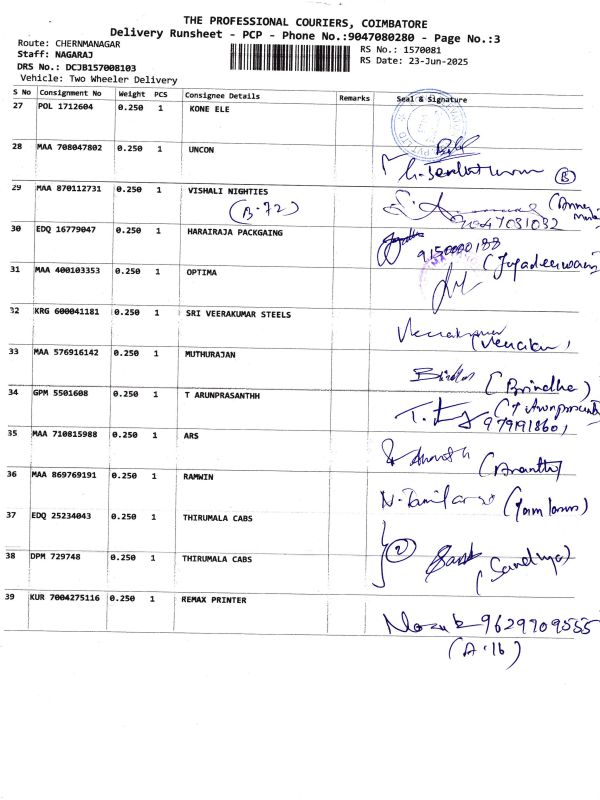 THE PROFESSIONAL COURIERS, COIMBATORE
Delivery Runsheet - PCP - Phone No.:9047080280 - Page No.:3
Route: CHERNMANAGAR
RS No.: 1570081
Staff: NAGARAJ
RS Date: 23-Jun-2025
DRS No.: DCJB157008103
Vehicle: Two Wheeler Delivery
S No Consignment No Weight PCS Consignee Details Remarks Seal & Signature
27 POL 1712604 0.250 1 KONE ELE
28 MAA 708047802 0.250 1 UNCON
(B)
29 MAA 870112731 0.250 1 VISHALI NIGHTIES
(B-72)
9047031032
30 EDQ 16779047 0.250 1 HARAIRAJA PACKGAING
9150000188
(Jagadeeswaran)
31 MAA 400103353 0.250 1 OPTIMA
32 KRG 600041181 0.250 1 SRI VEERAKUMAR STEELS
33 MAA 576916142 0.250 1 MUTHURAJAN
(Brindha)
34 GPM 5501608 0.250 1 T ARUNPRASANTHH
35 MAA 710815988 0.250 1 ARS
36 MAA 869769191 0.250 1 RAMWIN
37 EDQ 25234043 0.250 1 THIRUMALA CABS
(2)
38 DPM 729748 0.250 1 THIRUMALA CABS
(Sandhya)
39 KUR 7004275116 0.250 1 REMAX PRINTER
9629709555
(A-16)